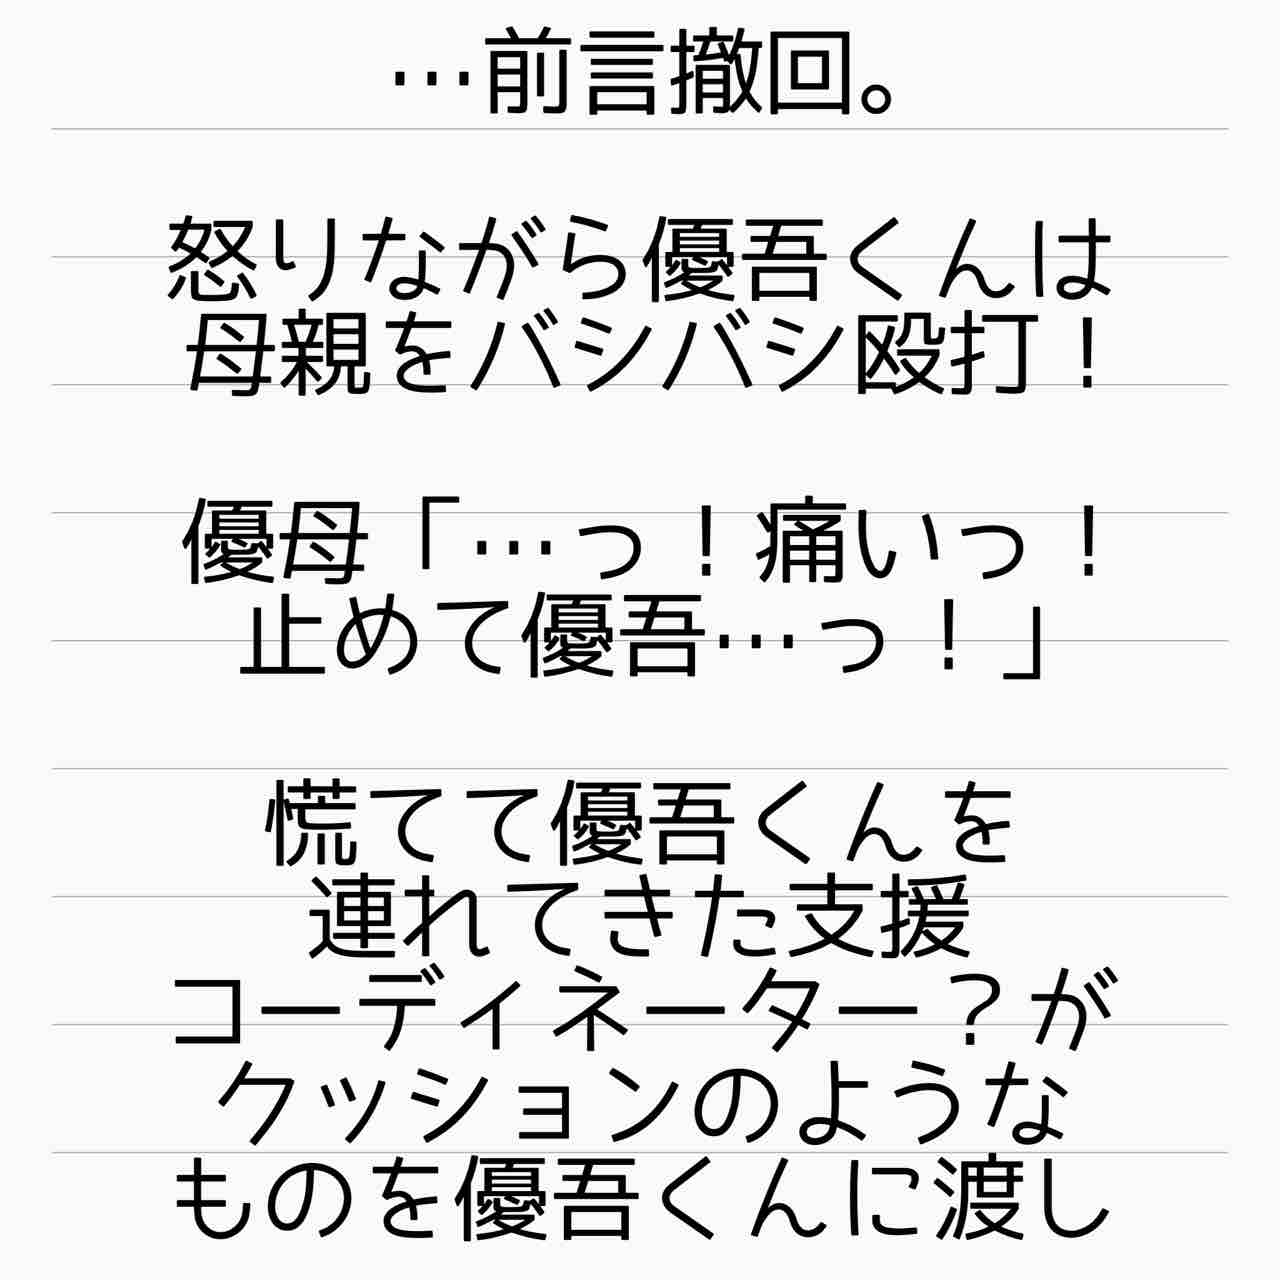 …前言撤回。
怒りながら優吾くんは
母親をバシバシ殴打！
優母「…っ！痛いっ！
止めて優吾…っ！」
慌てて優吾くんを
連れてきた支援
コーディネーター？が
クッションのような
ものを優吾くんに渡し